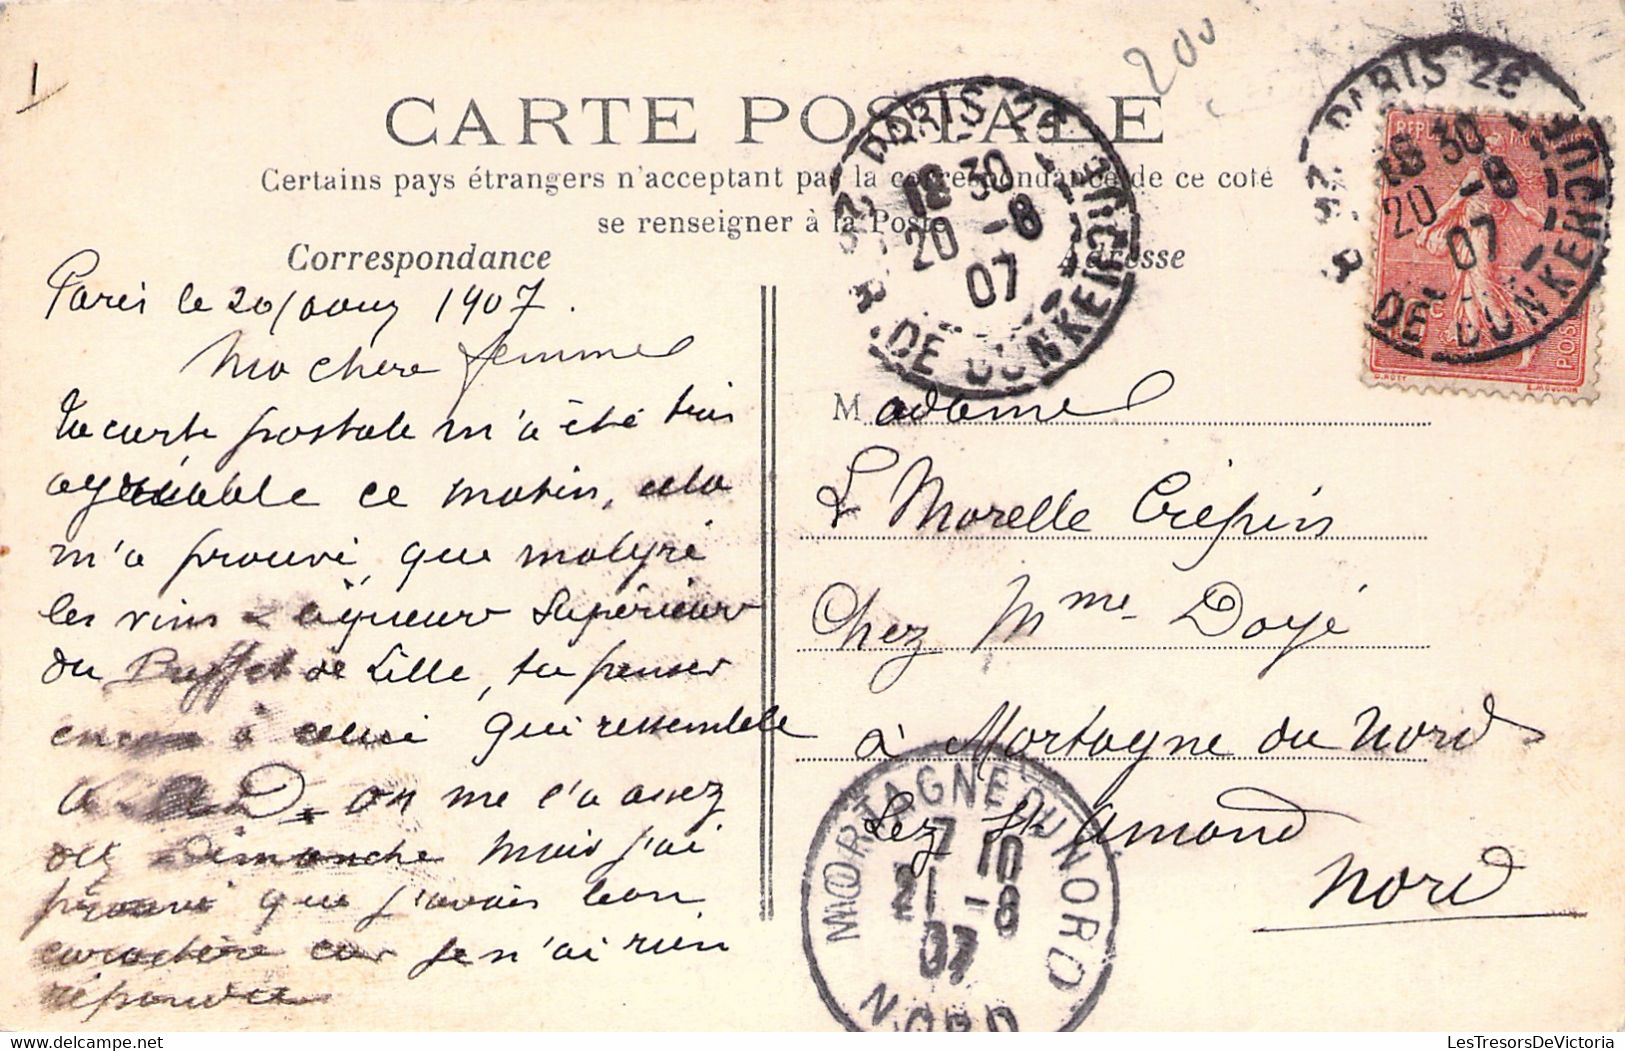 1
200
CARTE POSTALE
Certains pays étrangers n'acceptant pas la correspondance de ce coté
se renseigner à la Poste
Correspondance
Adresse
PARIS 26
18 30
20 -8
07
R. DE DUNKERQUE
PARIS 26
18 30
20 -8
07
R. DE DUNKERQUE
POSTES
Paris le 20/aout 1907.
Ma chere femme
La carte postale m'a été très
agréable ce matin, cela
m'a prouvé, que malgré
les vins & liqueurs Supérieurs
du Buffet de Lille, tu penses
encore à celui qui ressemble
a D, on me l'a assez
dit Dimanche mais j'ai
prouvé que j'avais bon
caractère car je n'ai rien
répondu
Madame
L Morelle Crépin
Chez Mme Doyé
à Mortagne du Nord
Lez St Amand
Nord
MORTAGNE DU NORD
7 10
21 -8
07
NORD
LesTresorsDeVictoria